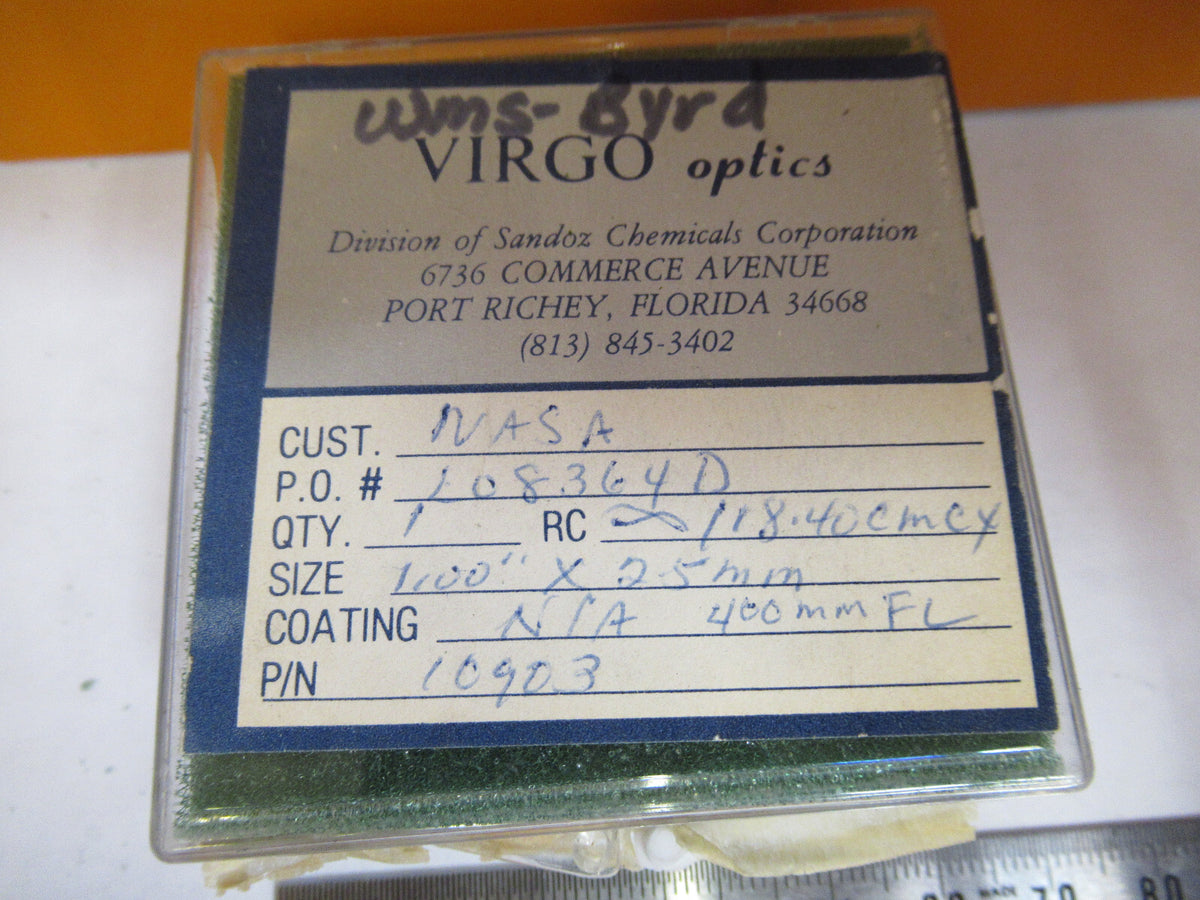 Wms-Byrd
VIRGO optics
Division of Sandoz Chemicals Corporation
6736 COMMERCE AVENUE
PORT RICHEY, FLORIDA 34668
(813) 845-3402
CUST. NASA
P.O. # L08364D
QTY. 1 RC ∞ 118.40cmcx
SIZE 1.00" X 2.5mm
COATING N/A 400mm FL
P/N 10903
70 80